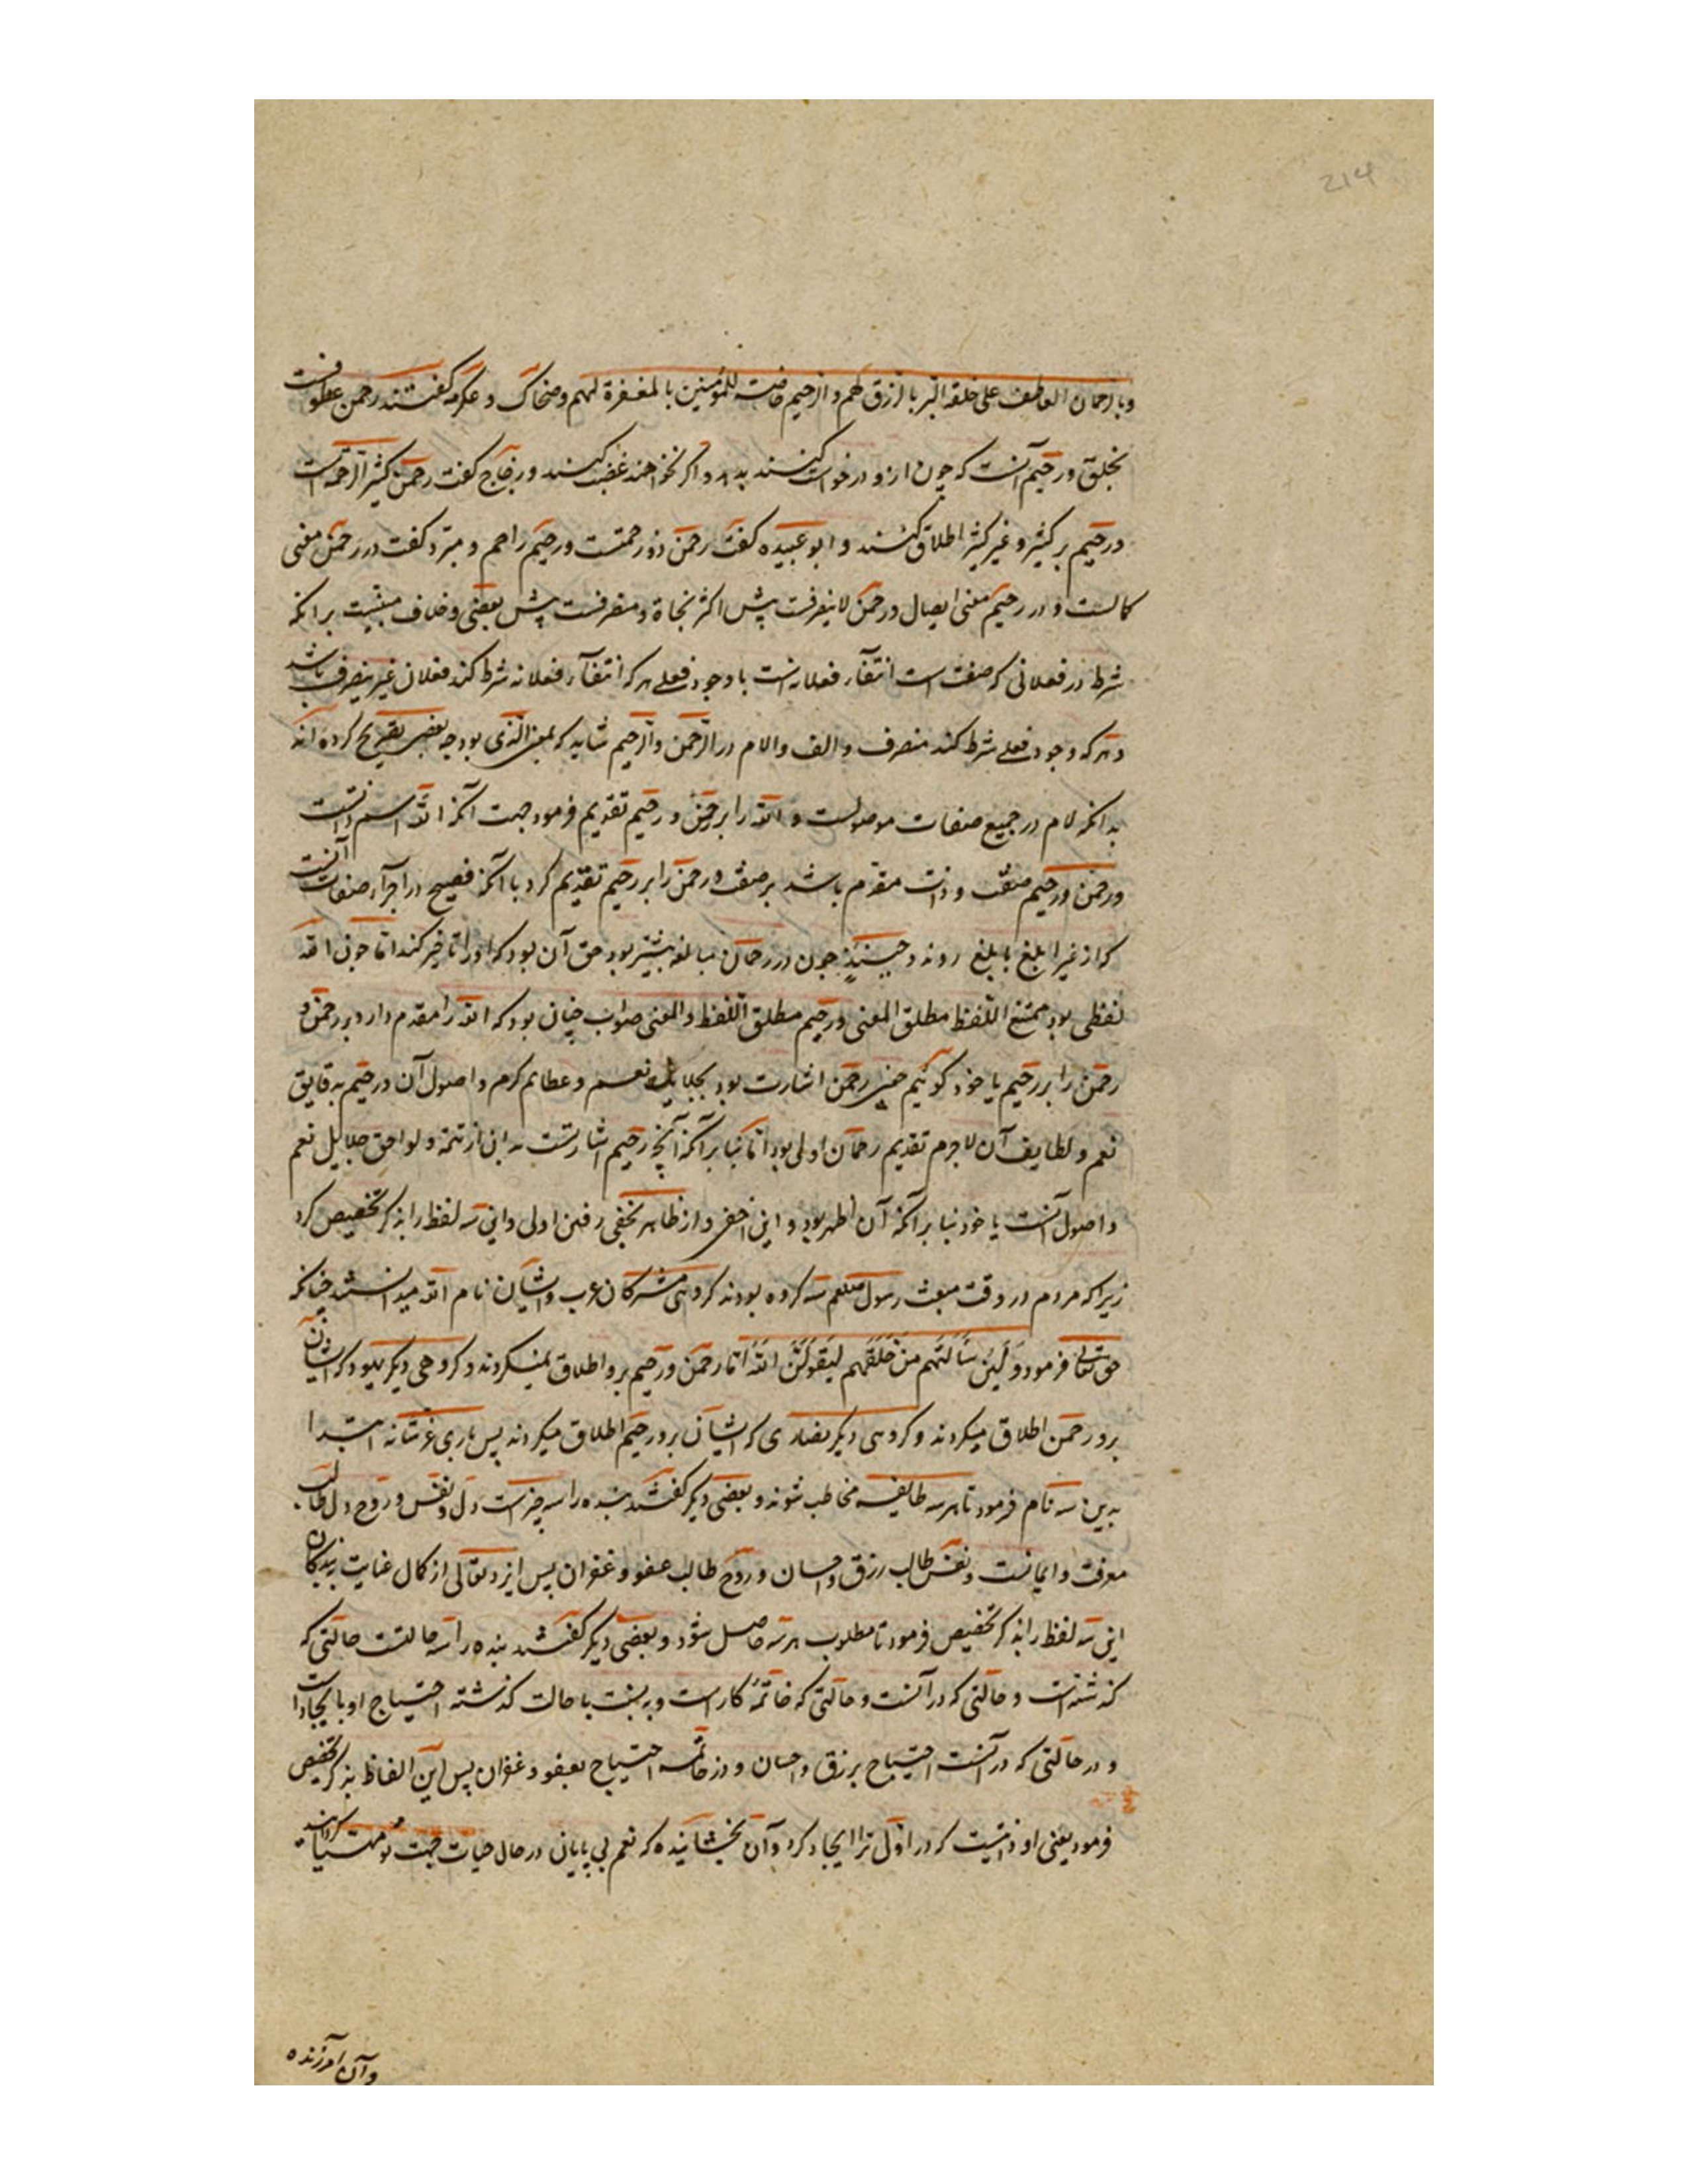 214
وبالرحمان العاطف علی خلقه البر بالرزق لهم و الرحیم خاصة للمؤمنین بالمغفرة لهم و ضحاک و عکرمه گفتند رحمن عطوفست
بخلق و رحیم آنست که چون ازو درخواست کنند بدهد و اگر نخواهند غضب کنند و زجاج گفت رحمن کثیر الرحمة است
و رحیم بر کثیر و غیر کثیر اطلاق کنند و ابو عبیده گفت رحمن ذو رحمتست و رحیم راحم و مبرد گفت در رحمن معنی
کمالست و در رحیم معنی ایصال و رحمن لاینصرفست پیش اکثر نحاة و منصرفست پیش بعضی و خلاف مبنیست برانکه
شرط در فعلانی که صفتست انتفآء فعلانه است با وجود فعلی هر که انتفآء فعلانه شرط کند فعلان غیر منصرف باشد
و هر که وجود فعلی شرط کند منصرف و الف و الام در الرحمن و الرحیم شاید که بمعنی الذی بود چه بعضی تصریح کرده اند
بدانکه لام در جمیع صفات موصولست و الله را بر رحمن و رحیم تقدیم فرمود جهت آنکه الله اسم ذاتست
و رحمن و رحیم صفت و ذات مقدم باشد بر صفت و رحمن را بر رحیم تقدیم کرد با آنکه فصیح در اجرآء صفات آنست
که از غیر ابلغ بابلغ روند و حینئذ چون در رحمان مبالغه بیشتر بود حق آن بود که او را تاخیر کند اما چون الله
لفظی بود ممتنع اللفظ مطلق المعنی و رحیم مطلق اللفظ و المعنی صواب چنان بود که الله را مقدم دارد بر رحمن و
رحمن را بر رحیم یا خود گوئیم معنی رحمن اشارت بود بجلایل نعم و عظایم کرم و اصول آن و رحیم بدقایق
نعم و لطایف آن لاجرم تقدیم رحمان اولی بود اما بنا بر آنکه آنچه رحیم اشارتست بدان از تتمه و لواحق جلایل نعم
و اصول آنست یا خود بنا بر آنکه آن اظهر بود و این اخفی و از ظاهر بخفی رفتن اولی و این سه لفظ را بذکر تخصیص کرد
زیرا که مردم در وقت مبعث رسول صلعم سه گروه بودند گروهی مشرکان عرب و ایشان نام الله میدانستند چنانکه
حق تعالی فرمود وَلَئِن سَأَلتَهُم مَن خَلَقَهُم لَیَقُولُنَّ اللهُ اما رحمن و رحیم برو اطلاق نمیکردند و گروهی دیگر یهود که ایشان
برو رحمن اطلاق میکردند و گروهی دیگر نصاری که ایشان برو رحیم اطلاق میکردند پس باری عز شانه ابتدا
بدین سه نام فرمود تا هر سه طایفه مخاطب شوند و بعضی دیگر گفتند بنده را سه چیزست دل و نفس و روح دل طالب
معرفت و ایمانست و نفس طالب رزق و احسان و روح طالب عفو و غفران پس ایزد تعالی از کمال عنایت بر بندگان
این سه لفظ را بذکر تخصیص فرمود تا مطلوب هر سه حاصل شود و بعضی دیگر گفتند بنده را سه حالتست حالتی که
گذشته است و حالتی که در آنست و حالتی که خاتمه کار است و به نسبت با حالت گذشته احتیاج او بایجاد است
و در حالتی که در آنست احتیاج برزق و احسان و در خاتمه احتیاج بعفو و غفران پس این الفاظ بذکر تخصیص
فرمود یعنی او ذاتیست که در اول ترا ایجاد کرد و آن بخشاینده که نعم بی پایان در حال حیات جهت تو مهیا گردانید
و آن آمرزنده